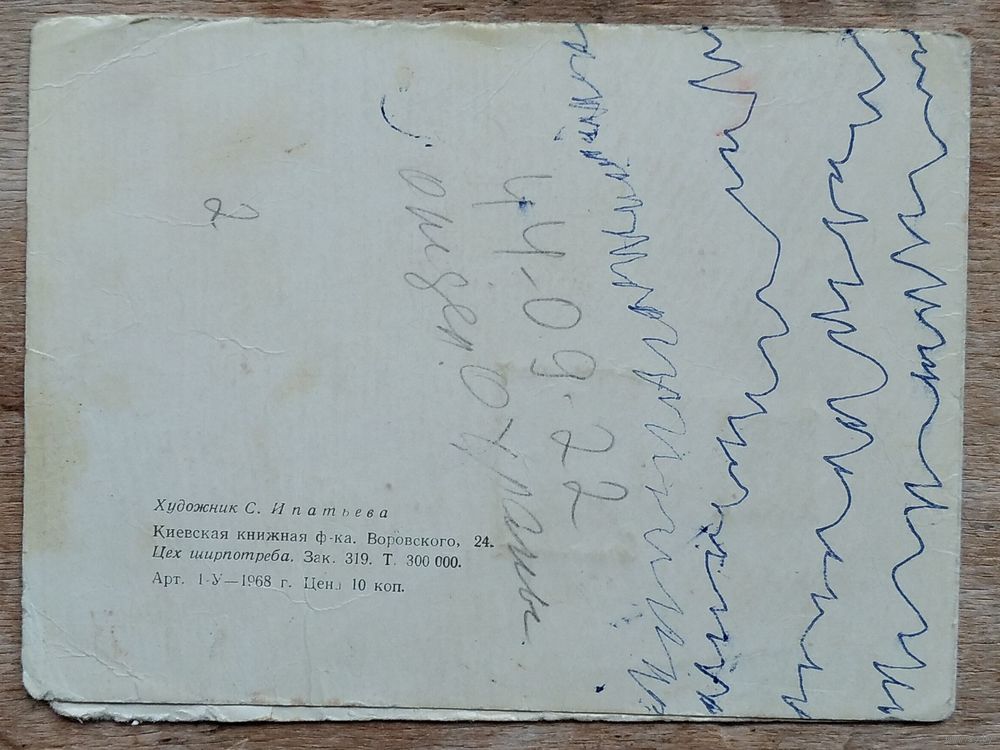 Художник С. Ипатьева
Киевская книжная ф-ка. Воровского, 24.
Цех ширпотреба. Зак. 319. Т. 300 000.
Арт. 1-У—1968 г. Цена 10 коп.
2
44-09-22